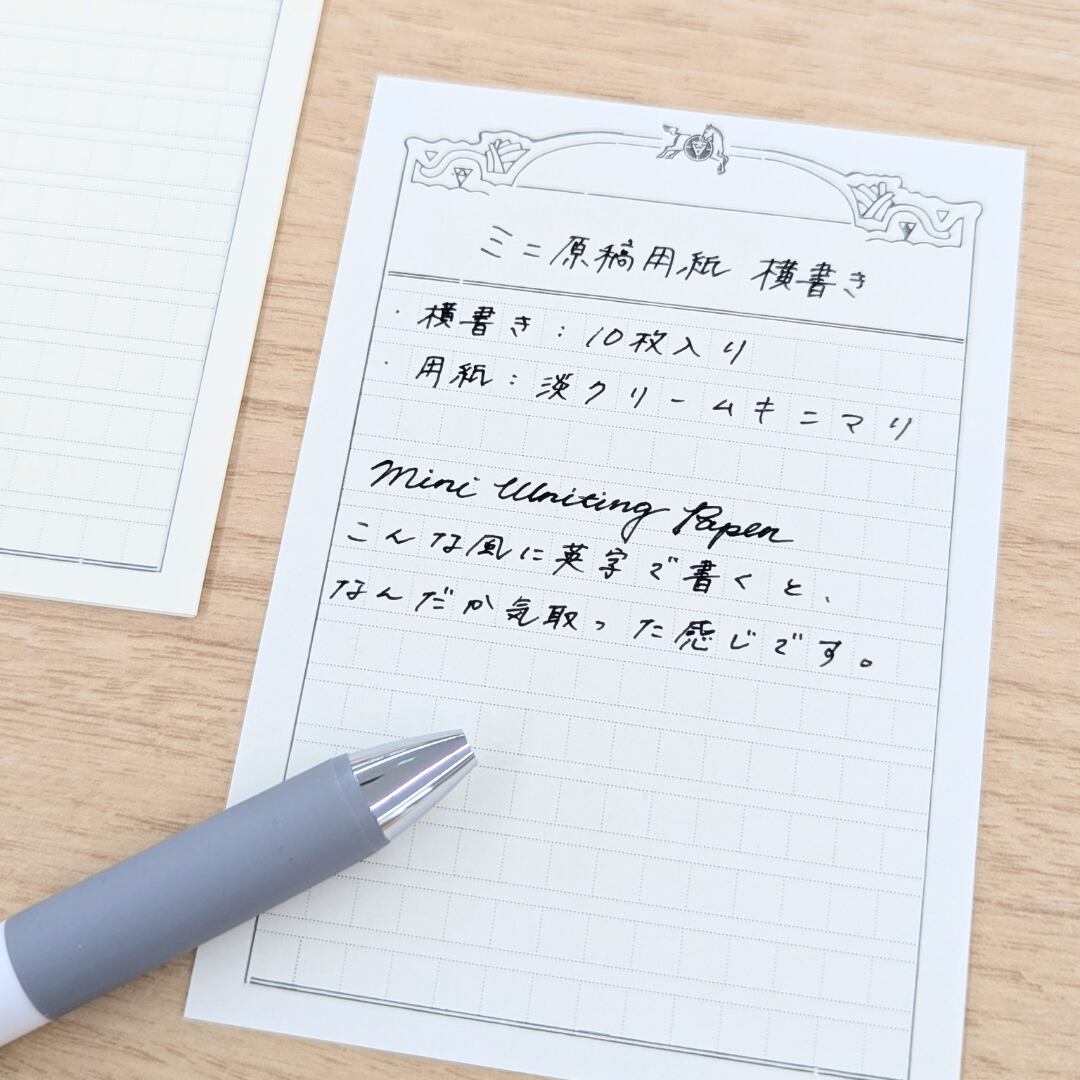 ミニ原稿用紙 横書き
・横書き：10枚入り
・用紙：淡クリームキニマリ
Mini Writing Paper
こんな風に英字で書くと、
なんだか気取った感じです。